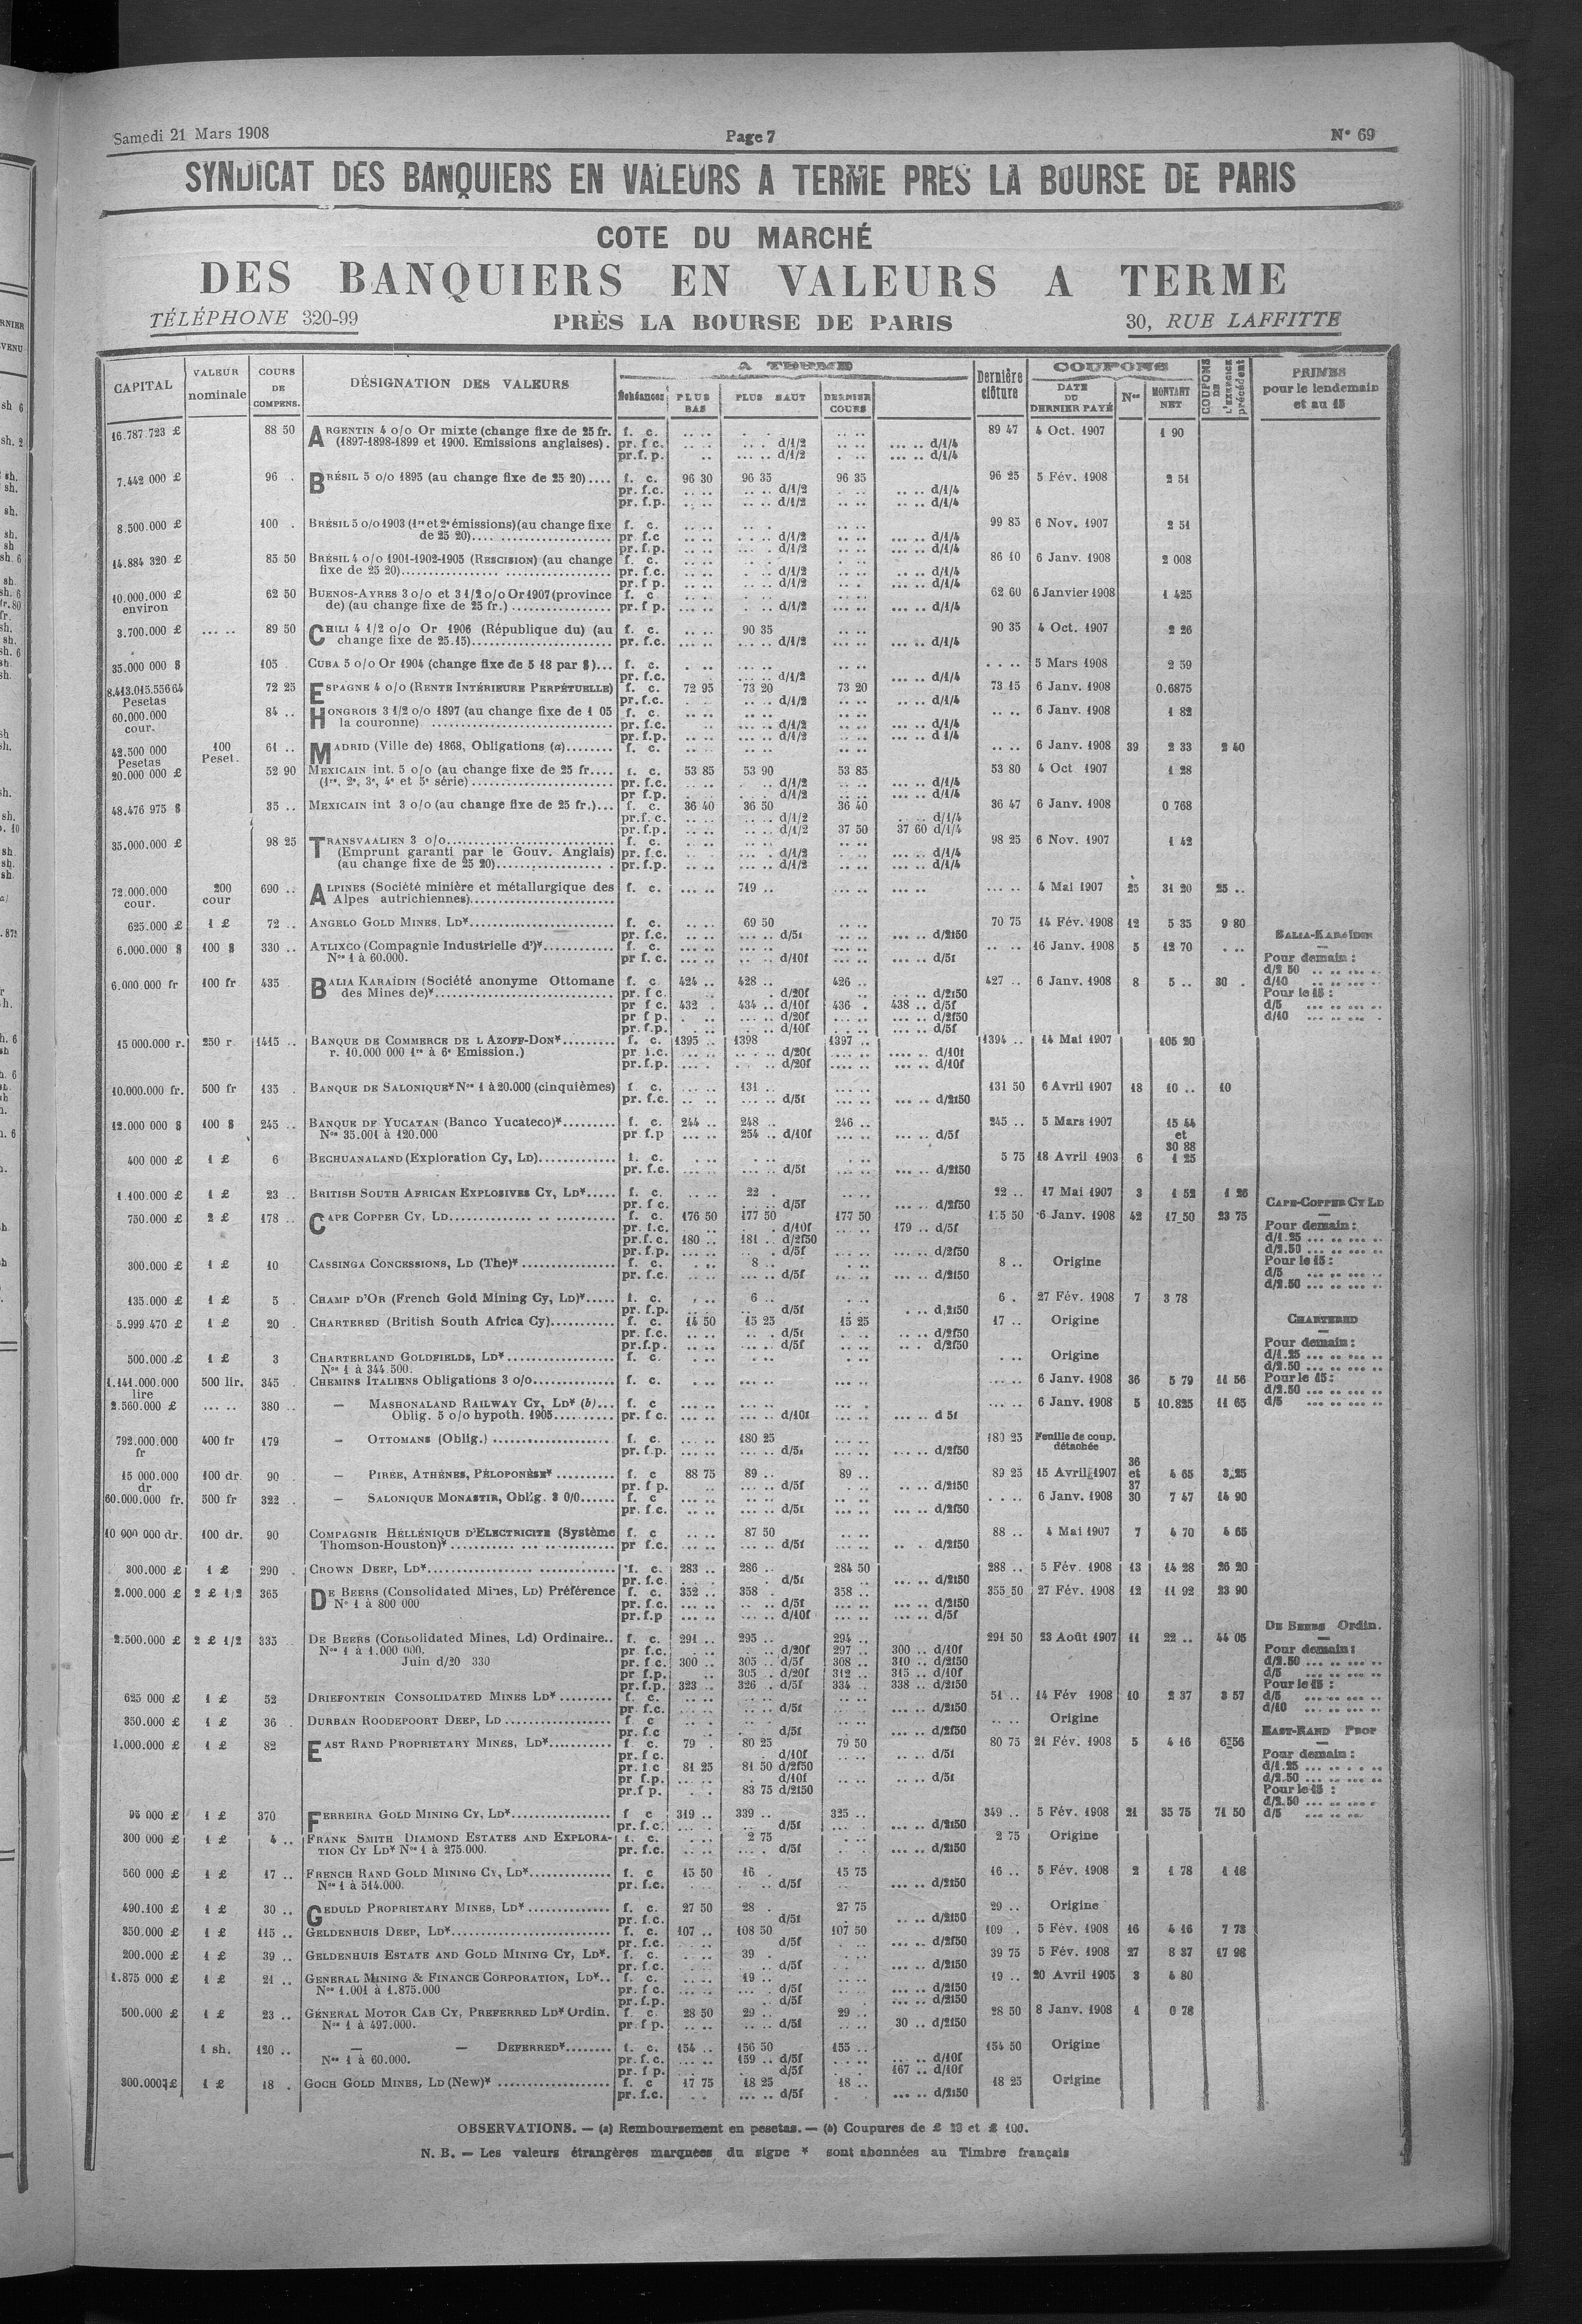 Samedi 21 Mars 1908
Page 7
N° 69
SYNDICAT DES BANQUIERS EN VALEURS A TERME PRES LA BOURSE DE PARIS
COTE DU MARCHÉ
DES BANQUIERS EN VALEURS A TERME
TÉLÉPHONE 320-99 PRÈS LA BOURSE DE PARIS 30, RUE LAFFITTE
CAPITAL VALEUR nominale COURS DE COMPENS. DÉSIGNATION DES VALEURS A TERME Échéances PLUS BAS PLUS HAUT DERNIER COURS Dernière clôture COUPONS DATE DU DERNIER PAYÉ Nos MONTANT NET COUPONS DE L'EXERCICE précédent PRIMES pour le lendemain et au 15
16.787 723 £ 88 50 ARGENTIN 4 o/o Or mixte (change fixe de 25 fr. f. c. 89 47 4 Oct. 1907 1 90
(1897-1898-1899 et 1900. Emissions anglaises). pr. f c. d/1/2 d/1/4
pr.f. p. d/1/2 d/1/4
7.442 000 £ 96 BRÉSIL 5 o/o 1895 (au change fixe de 25 20).... f. c. 96 30 96 35 96 35 96 25 5 Fév. 1908 2 51
pr. f.c. d/1/2 d/1/4
pr. f.p. d/1/2 d/1/4
8.500.000 £ 100 BRÉSIL 5 o/o 1903 (1re et 2e émissions) (au change fixe f. c. 99 85 6 Nov. 1907 2 51
de 25 20).... pr. f.c d/1/2 d/1/4
pr. f.p. d/1/2 d/1/4
14.884 320 £ 85 50 BRÉSIL 4 o/o 1901-1902-1905 (RESCISION) (au change f. c. 86 10 6 Janv. 1908 2 008
fixe de 25 20).... pr. f.c. d/1/2 d/1/4
pr. f p. d/1/2 d/1/4
10.000.000 £ environ 62 50 BUENOS-AYRES 3 o/o et 3 1/2 o/o Or 1907 (province f. c 62 60 6 Janvier 1908 1 425
de) (au change fixe de 25 fr.) .... pr. f p. d/1/2 d/1/4
3.700.000 £ 89 50 CHILI 4 1/2 o/o Or 1906 (République du) (au f. c. 90 35 90 35 4 Oct. 1907 2 26
change fixe de 25.15).... pr. f.c. d/1/2 d/1/4
35.000 000 $ 105 CUBA 5 o/o Or 1904 (change fixe de 5 18 par $)... f. c. 5 Mars 1908 2 59
pr. f.c. d/1/2 d/1/4
8.413.015.556 64 Pesetas 72 25 ESPAGNE 4 o/o (RENTE INTÉRIEURE PERPÉTUELLE) f. c. 72 95 73 20 73 20 73 15 6 Janv. 1908 0.6875
pr. f.c. d/1/2 d/1/4
60.000.000 cour. 84 .. HONGROIS 3 1/2 o/o 1897 (au change fixe de 1 05 f. c. 6 Janv. 1908 1 82
la couronne) .... pr. f.c. d/1/2 d/1/4
pr. f.p. d/1/2 d 1/4
42.500 000 Pesetas 100 Peset. 61 .. MADRID (Ville de) 1868, Obligations (a)........ f. c. 6 Janv. 1908 39 2 33 2 40
20.000 000 £ 52 90 MEXICAIN int. 5 o/o (au change fixe de 25 fr.... f. c. 53 85 53 90 53 85 53 80 4 Oct 1907 1 28
(1re, 2e, 3e, 4e et 5e série) .... pr. f.c. d/1/2 d/1/4
pr f.p. d/1/2 d/1/4
48.476 975 $ 35 .. MEXICAIN int 3 o/o (au change fixe de 25 fr.)... f. c. 36 40 36 50 36 40 36 47 6 Janv. 1908 0 768
pr.f. c. d/1/2 d/1/4
pr. f.p. d/1/2 37 50 37 60 d/1/4
35.000.000 £ 98 25 TRANSVAALIEN 3 o/o.... f. c. 98 25 6 Nov. 1907 1 42
(Emprunt garanti par le Gouv. Anglais) pr. f.c. d/1/2 d/1/4
(au change fixe de 25 20).... pr. f.p. d/1/2 d/1/4
72.000.000 cour. 200 cour 690 .. ALPINES (Société minière et métallurgique des f. c. 719 .. 4 Mai 1907 25 31 20 25 ..
Alpes autrichiennes)....
625.000 £ 1 £ 72 .. ANGELO GOLD MINES, LD*.... f. c. 69 50 70 75 14 Fév. 1908 12 5 35 9 80
pr. f.c. d/5f d/2f50
6.000.000 $ 100 $ 330 .. ATLIXCO (Compagnie Industrielle d')*.... f. c. 16 Janv. 1908 5 12 70
Nos 1 à 60.000. pr f. c. d/10f d/5f
6.000 000 fr 100 fr 435 BALIA KARAÏDIN (Société anonyme Ottomane f. c. 424 .. 428 .. 426 .. 427 .. 6 Janv. 1908 8 5 .. 30 .
des Mines de)*.... pr. f c. d/20f d/2f50
pr f c. 432 434 .. d/10f 436 438 .. d/5f
pr f p. d/20f d/2f50
pr. f.p. d/10f d/5f
BALIA-KARAÏDIN
Pour demain :
d/2 50
d/10
Pour le 15 :
d/5
d/10
15 000.000 r. 250 r 1415 .. BANQUE DE COMMERCE DE L AZOFF-DON*.... f. c. 1395 .. 1398 1397 .. 1394 .. 14 Mai 1907 105 20
r. 10.000 000 1re à 6e Emission.) pr f.c. d/20f d/10f
pr. f.p. d/20f d/10f
10.000.000 fr. 500 fr 135 BANQUE DE SALONIQUE* Nos 1 à 20.000 (cinquièmes) f c. 131 .. 131 50 6 Avril 1907 18 10 .. 10
pr. f.c. d/5f d/2f50
12.000 000 $ 100 $ 245 .. BANQUE DE YUCATAN (Banco Yucateco)*.... f. c. 244 .. 248 .. 246 .. 245 .. 5 Mars 1907 15 44 et 30 88
Nos 35.001 à 120.000 pr f.p 254 .. d/10f d/5f
400 000 £ 1 £ 6 BECHUANALAND (Exploration Cy, LD).... f. c. 5 75 18 Avril 1903 6 1 25
pr. f.c. d/5f d/2f50
1.100.000 £ 1 £ 23 .. BRITISH SOUTH AFRICAN EXPLOSIVES CY, LD*..... f. c. 22 . 22 .. 17 Mai 1907 3 1 52 1 26
pr f c. d/5f d/2f50
750.000 £ 2 £ 178 .. CAPE COPPER CY, LD.... f. c. 176 50 177 50 177 50 175 50 6 Janv. 1908 42 17 50 23 75
pr. f.c. d/10f 179 .. d/5f
pr.f. c. 180 .. 181 .. d/2f50
pr. f.p. d/5f d/2f50
CAPE-COPPER CY LD
Pour demain :
d/1.25
d/2.50
Pour le 15 :
d/5
d/2.50
300.000 £ 1 £ 10 CASSINGA CONCESSIONS, LD (The)* .... f. c 8 .. 8 .. Origine
pr. f.c. d/5f d/2f50
135.000 £ 1 £ 5 CHAMP D'OR (French Gold Mining Cy, LD)*..... f. c. 6 .. 6 . 27 Fév. 1908 7 3 78
pr. f.p. d/5f d,2f50
5.999.470 £ 1 £ 20 CHARTERED (British South Africa Cy).... f. c. 14 50 15 25 15 25 17 .. Origine
pr. f.c. d/5f d/2f50
pr.f.p. d/5f d/2f50
CHARTERED
Pour demain :
d/1.25
d/2.50
Pour le 15 :
d/2.50
d/5
500.000 £ 1 £ 3 CHARTERLAND GOLDFIELDS, LD*.... f. c. Origine
Nos 1 à 344 500.
1.141.000.000 lire 500 lir. 345 CHEMINS ITALIENS Obligations 3 o/o.... f. c. 6 Janv. 1908 36 5 79 11 56
2.560.000 £ 380 .. — MASHONALAND RAILWAY CY, LD* (b)... f. c 6 Janv. 1908 5 10.825 11 65
Oblig. 5 o/o hypoth. 1905.... pr. f c. d/10f d 5f
792.000.000 fr 400 fr 179 — OTTOMANS (Oblig.) .... f. c. 180 25 180 25 Feuille de coup. détachée
pr. f.p. d/5f d/2f50
15 000.000 dr 100 dr. 90 — PIRÉE, ATHÈNES, PÉLOPONÈSE* .... f. c 88 75 89 .. 89 .. 89 25 15 Avril 1907 36 et 37 4 65 3.25
pr f p. d/5f d/2f50
60.000.000 fr. 500 fr 322 — SALONIQUE MONASTIR, Oblig. 3 0/0...... f. c 6 Janv. 1908 30 7 47 14 90
pr. f.c. d/5f d/2f50
10 900 000 dr. 100 dr. 90 COMPAGNIE HÉLLÉNIQUE D'ELECTRICITE (Système f. c 87 50 88 .. 4 Mai 1907 7 4 70 4 65
Thomson-Houston)* .... pr f.c. d/5f d/2f50
300.000 £ 1 £ 290 CROWN DEEP, LD*.... f. c. 283 .. 286 .. 284 50 288 .. 5 Fév. 1908 13 14 28 26 20
pr. f.c. d/5f d/2f50
2.000.000 £ 2 £ 1/2 365 DE BEERS (Consolidated Mines, LD) Préférence f. c. 352 .. 358 . 358 .. 355 50 27 Fév. 1908 12 11 92 23 90
Nos 1 à 800 000 pr. f.c. d/5f d/2f50
pr. f.p d/10f d/5f
2.500.000 £ 2 £ 1/2 335 DE BEERS (Consolidated Mines, Ld) Ordinaire.. f. c. 291 .. 295 .. 294 .. 291 50 23 Août 1907 11 22 .. 44 05
Nos 1 à 1.000 000. pr f.c. d/20f 297 .. 300 .. d/10f
Juin d/20 330 pr. f.c. 300 .. 305 .. d/5f 308 .. 310 .. d/2f50
pr f.p. 305 .. d/20f 312 .. 315 .. d/10f
pr. f.p. 323 .. 326 . d/5f 334 .. 338 .. d/2f50
DE BEERS Ordin.
Pour demain :
d/2.50
d/5
Pour le 15 :
d/5
d/10
625 000 £ 1 £ 52 DRIEFONTEIN CONSOLIDATED MINES LD* .... f. c. 51 .. 14 Fév 1908 10 2 37 3 57
pr. f.c. d/5f d/2f50
350.000 £ 1 £ 36 . DURBAN ROODEPOORT DEEP, LD .... f. c Origine
pr. f.c d/5f d/2f50
1.000.000 £ 1 £ 82 EAST RAND PROPRIETARY MINES, LD*.... f. c. 79 . 80 25 79 50 80 75 21 Fév. 1908 5 4 16 6 56
pr. f c. d/10f d/5f
pr. f.c 81 25 81 50 d/2f50
pr f.p. d/10f d/5f
pr.f p. 83 75 d/2f50
EAST-RAND PROP
Pour demain :
d/1.25
d/2.50
Pour le 15 :
d/2.50
d/5
95 000 £ 1 £ 370 FERREIRA GOLD MINING CY, LD*.... f c 319 .. 339 .. 325 .. 349 .. 5 Fév. 1908 21 35 75 71 50
pr. f.c. d/5f d/2f50
300 000 £ 1 £ 4 .. FRANK SMITH DIAMOND ESTATES AND EXPLORA- f. c. 2 75 2 75 Origine
TION CY LD* Nos 1 à 275.000. pr. f.c. d/5f d/2f50
560 000 £ 1 £ 17 .. FRENCH RAND GOLD MINING CY, LD*.... f. c 15 50 16 . 15 75 16 .. 5 Fév. 1908 2 1 78 1 18
Nos 1 à 514.000. pr. f.c. d/5f d/2f50
490.100 £ 1 £ 30 .. GEDULD PROPRIETARY MINES, LD* .... f. c. 27 50 28 . 27 75 29 .. Origine
pr. f.c. d/5f d/2f50
350.000 £ 1 £ 115 .. GELDENHUIS DEEP, LD*.... f. c. 107 .. 108 50 107 50 109 . 5 Fév. 1908 16 4 16 7 73
pr. f.c. d/5f d/2f50
200.000 £ 1 £ 39 .. GELDENHUIS ESTATE AND GOLD MINING CY, LD*. f. c. 39 . 39 75 5 Fév. 1908 27 8 37 17 98
pr. f.c. d/5f d/2f50
1.875 000 £ 1 £ 21 .. GENERAL MINING & FINANCE CORPORATION, LD*.. f. c. 19 .. 19 .. 20 Avril 1905 3 4 80
Nos 1.001 à 1.875.000 pr f c. d/5f d/2f50
pr. f.p. d/5f d/2f50
500.000 £ 1 £ 23 .. GÉNÉRAL MOTOR CAB CY, PREFERRED LD* Ordin. f. c. 28 50 29 .. 29 .. 28 50 8 Janv. 1908 1 0 78
Nos 1 à 497.000. pr f p. d/5f 30 .. d/2f50
1 sh. 120 .. — — DEFERRED*........ f. c. 154 .. 156 50 155 .. 154 50 Origine
Nos 1 à 60.000. pr. f.c. 159 .. d/5f d/10f
pr. f p. d/5f 167 .. d/10f
300.000 £ 1 £ 18 . GOCH GOLD MINES, LD (New)* .... f. c 17 75 18 25 18 .. 18 25 Origine
pr. f.c. d/5f d/2f50
OBSERVATIONS. — (a) Remboursement en pesetas. — (b) Coupures de £ 20 et £ 100.
N. B. — Les valeurs étrangères marquées du signe * sont abonnées au Timbre français